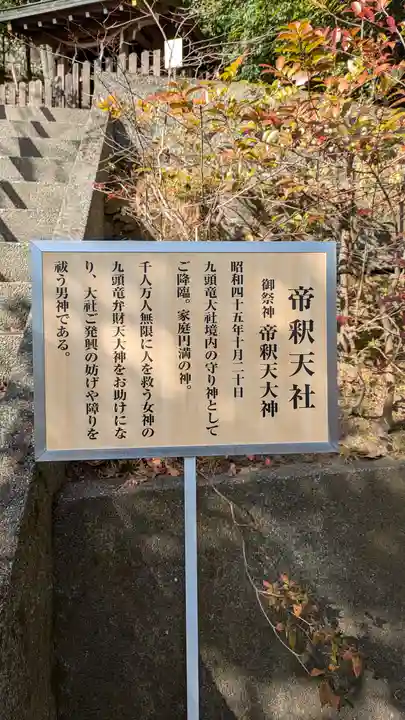 帝釈天社
御祭神 帝釈天大神
昭和四十五年十月二十日
九頭竜大社境内の守り神として
ご降臨。家庭円満の神。
千人万人無限に人を救う女神の
九頭竜弁財天大神をお助けにな
り、大社ご発興の妨げや障りを
祓う男神である。